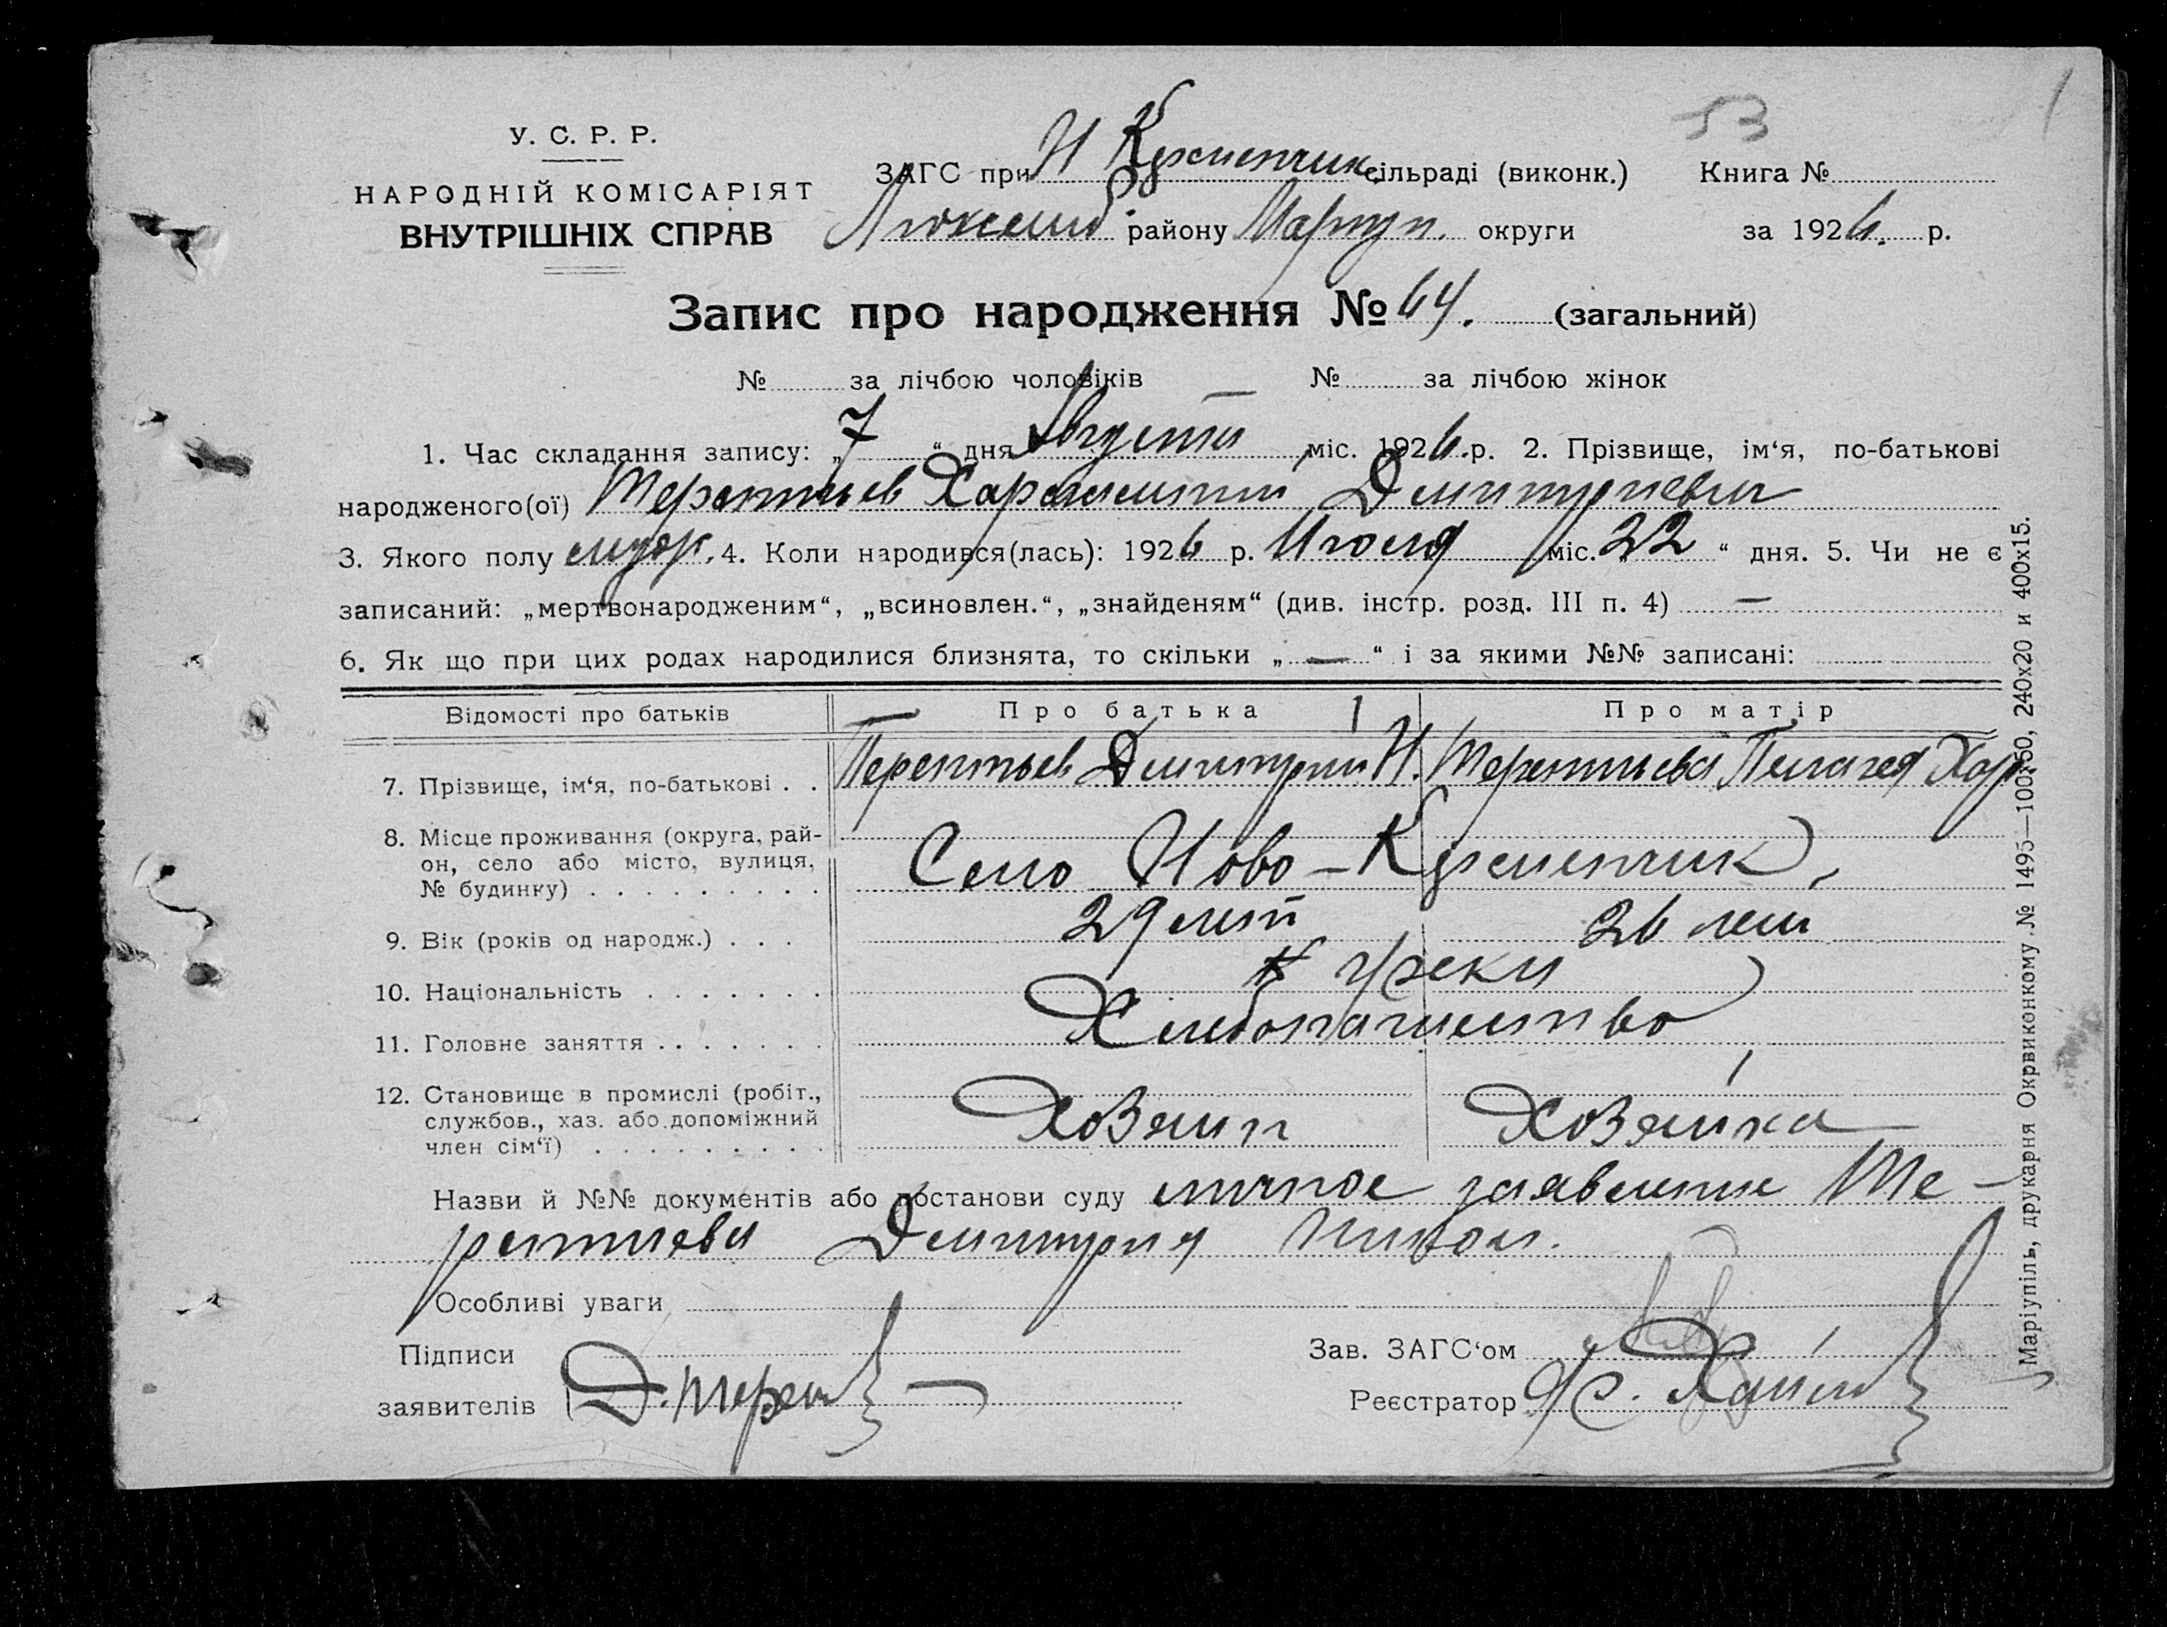 53
У. С. Р. Р.
НАРОДНІЙ КОМІСАРІЯТ
ВНУТРІШНІХ СПРАВ
ЗАГС при Н Керменчик сільраді (виконк.) Книга №
району Мариуп. округи за 1926. р.
Запис про народження № 64. (загальний)
№ за лічбою чоловіків — № за лічбою жінок
1. Час складання запису: „7“ дня Августа міс. 1926.р. 2. Прізвище, ім‘я, по-батькові
народженого(ої) Терентьев Харлампий Дмитриевич
3. Якого полу муж. 4. Коли народився(лась): 1926 р. Июля міс. „22“ дня. 5. Чи не є
записаний: „мертвонародженим“, „всиновлен.“, „знайденям“ (див. інстр. розд. III п. 4) —
6. Як що при цих родах народилися близнята, то скільки „—“ і за якими №№ записані:
Відомості про батьків Про батька Про матір
7. Прізвище, ім‘я, по-батькові . . Терентьев Дмитрий И. Терентьева Пелагея Хар.
8. Місце проживання (округа, рай-
он, село або місто, вулиця,
№ будинку) . . . . . . . . . Село Ново-Керменчик,
9. Вік (років од народж.) . . . 29 лет 26 лет
10. Національність . . . . . . . греки
11. Головне заняття . . . . . . . Хлебопашество
12. Становище в промислі (робіт.,
службов., хаз. або допоміжний
член сім‘ї) . . . . . . . . . Хозяин Хозяйка
Назви й №№ документів або постанови суду личное заявление Те-
рентиева Дмитрия
Особливі уваги
Підписи
заявителів Д. Терен
Зав. ЗАГС‘ом
Реєстратор
Маріупіль, друкарня Окрвиконкому № 1495—100х50, 240х20 и 400х15.